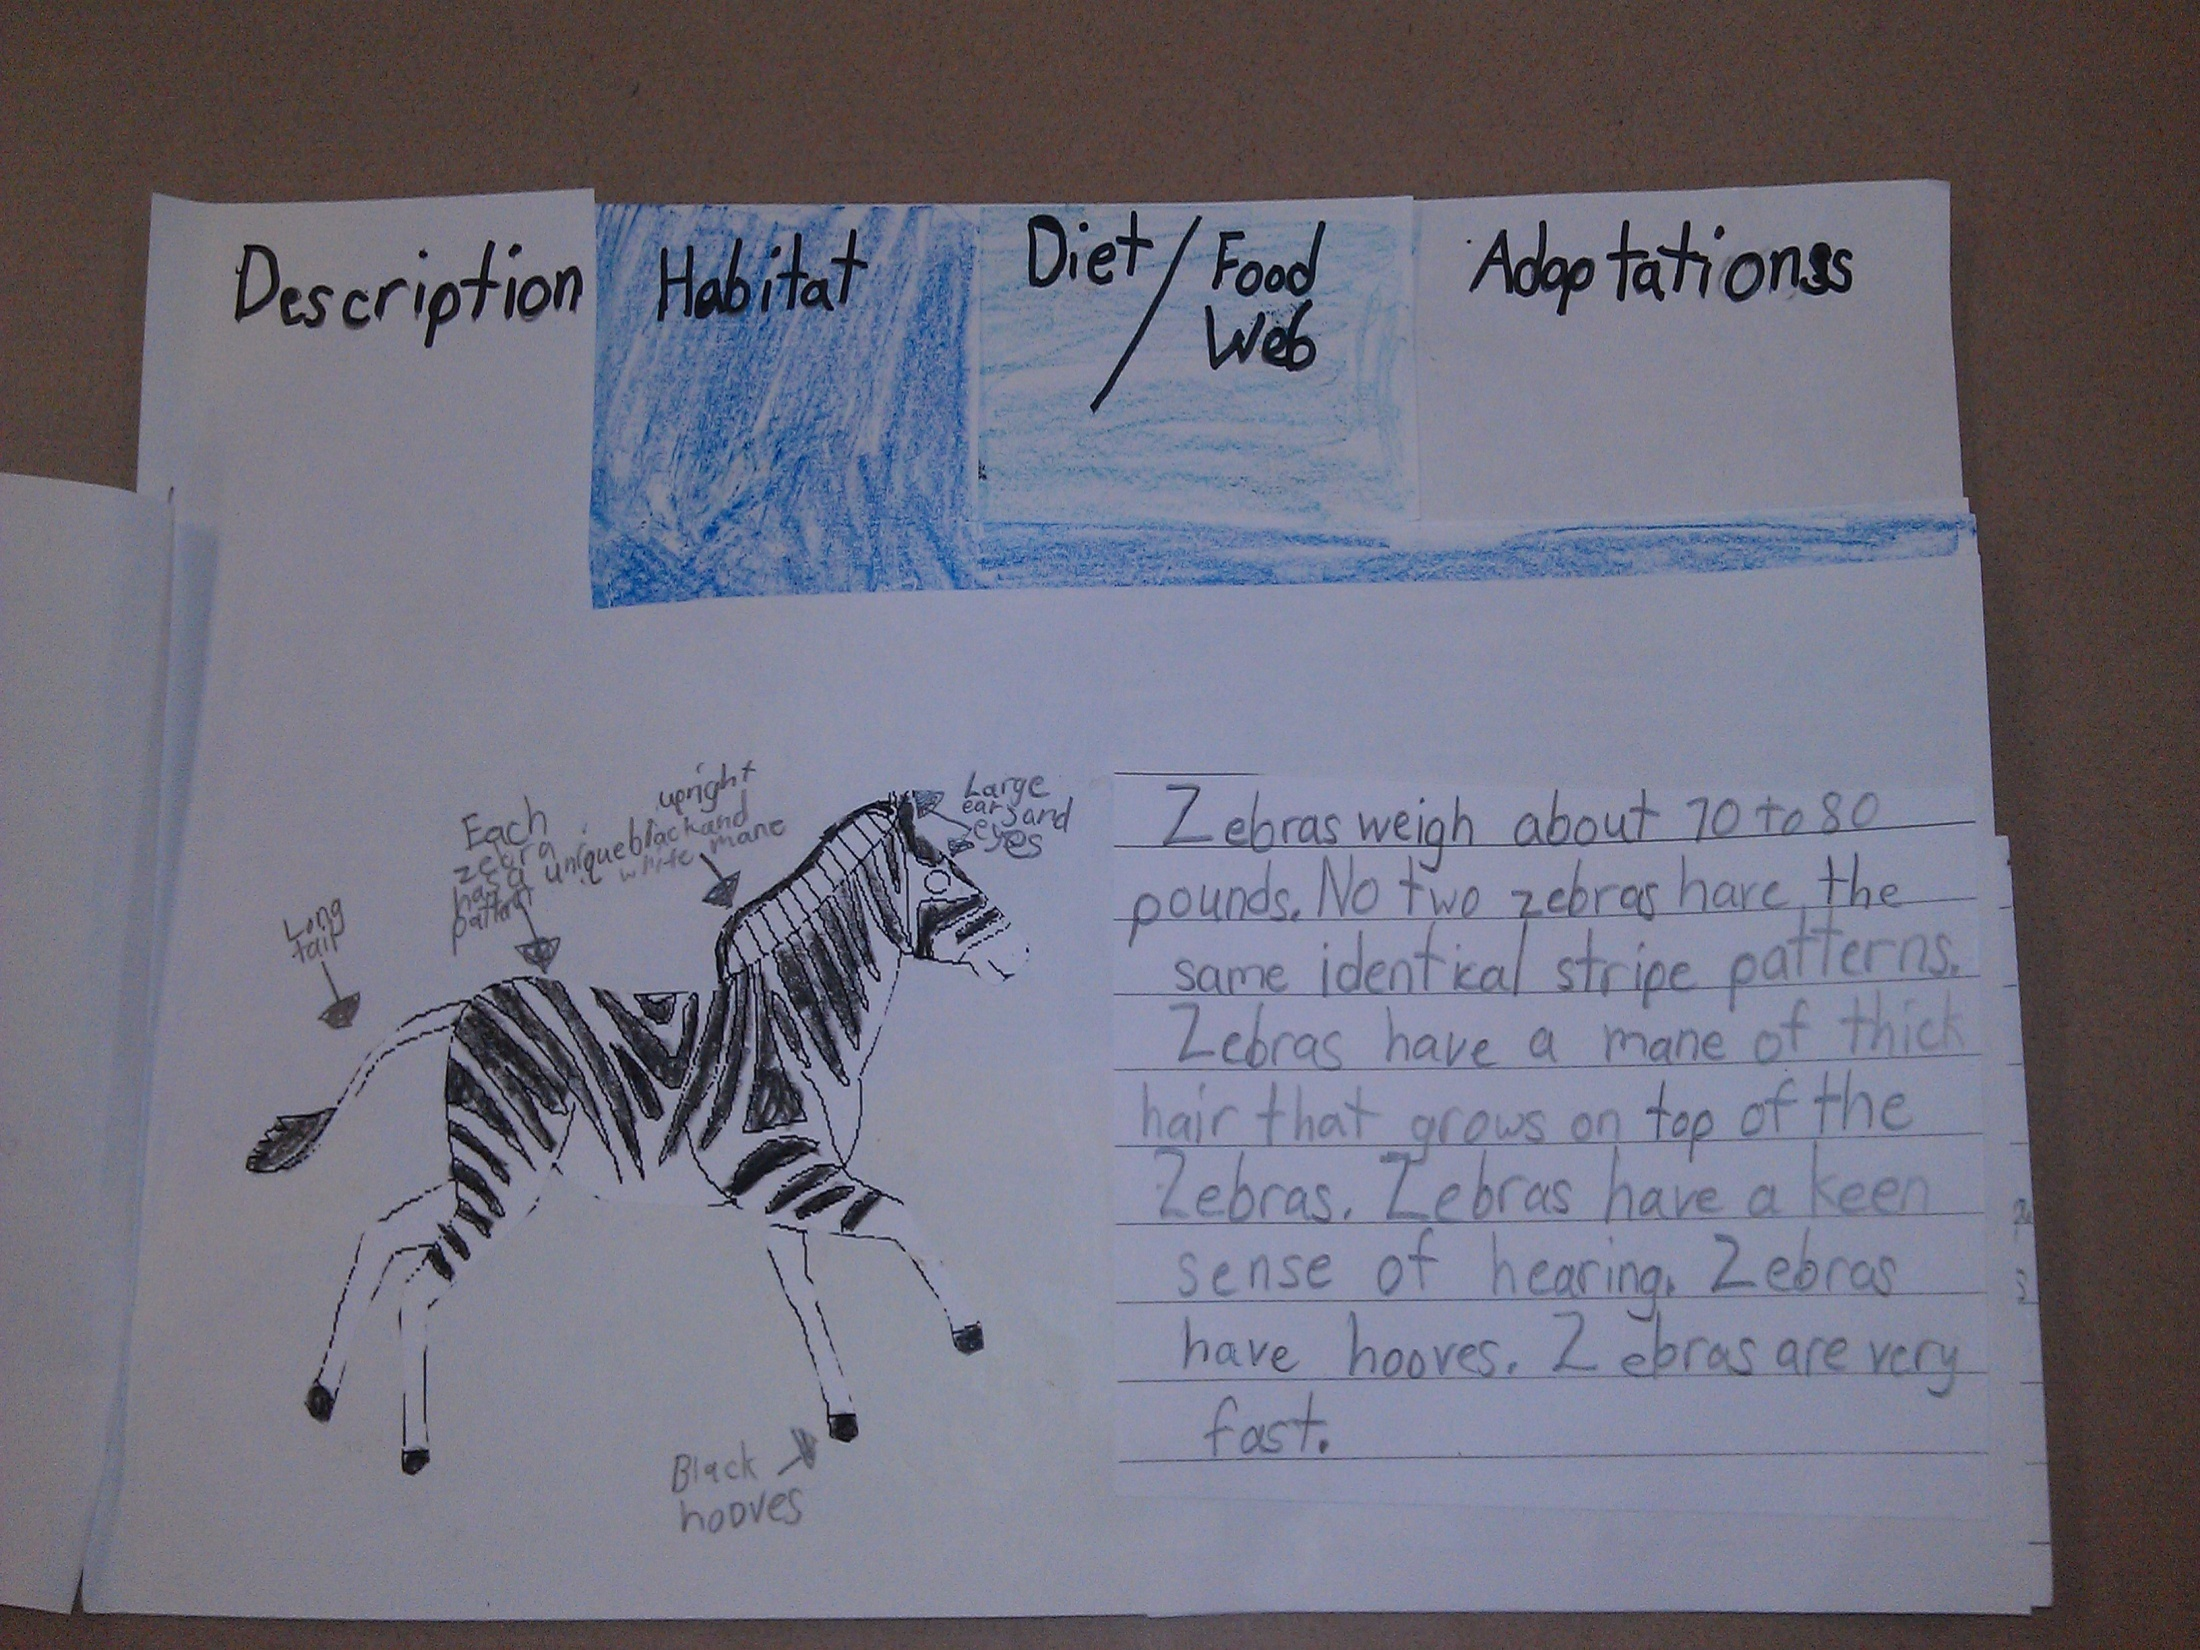 Description
Habitat
Diet / Food
Web
Adaptations
Long
tail
Each
zebra
has a unique
pattern
upright
black and
white mane
Large
ears and
eyes
Black
hooves
Zebras weigh about 70 to 80
pounds. No two zebras have the
same identical stripe patterns.
Zebras have a mane of thick
hair that grows on top of the
Zebras. Zebras have a keen
sense of hearing. Zebras
have hooves. Zebras are very
fast.